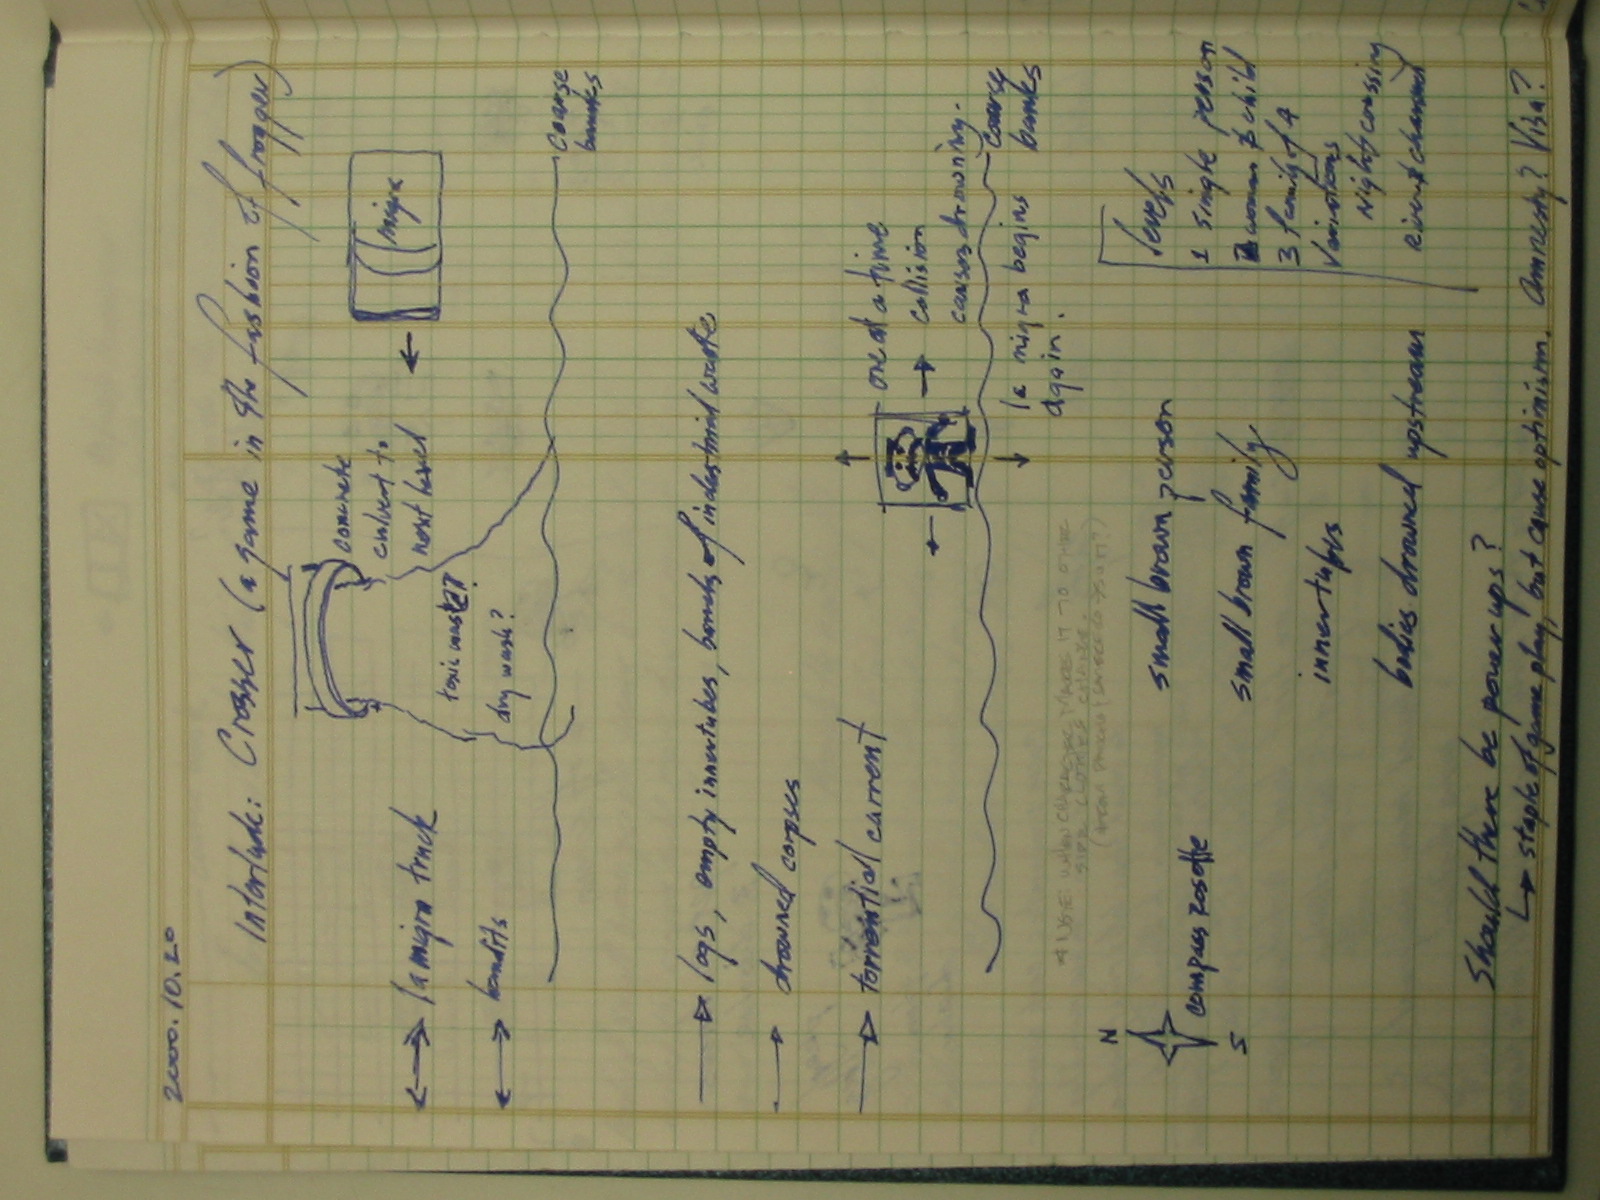 2000.10.20
Interlude: Crosser (a game in the fashion of frogger)
la migra truck
bandits
concrete
culvert to
next level
migra
toxic waste?
dry wash?
coarse
banks
logs, empty innertubes, barrels of industrial waste
drowned corpses
torrential current
one at a time
collision
causes drowning.
coarse
banks
la migra begins
again.
* NOTE: WHEN CHARACTER MAKES IT TO OTHER
SIDE CLOTHES CHANGE.
N
S
compass rosette
small brown person
small brown family
innertubes
bodies drowned upstream
levels
1 single person
2 woman & child
3 family of 4
Variations
Night crossing
river channel
Should there be power ups?
↳ staple of game play, but cause optimism. Amnesty? Visa?